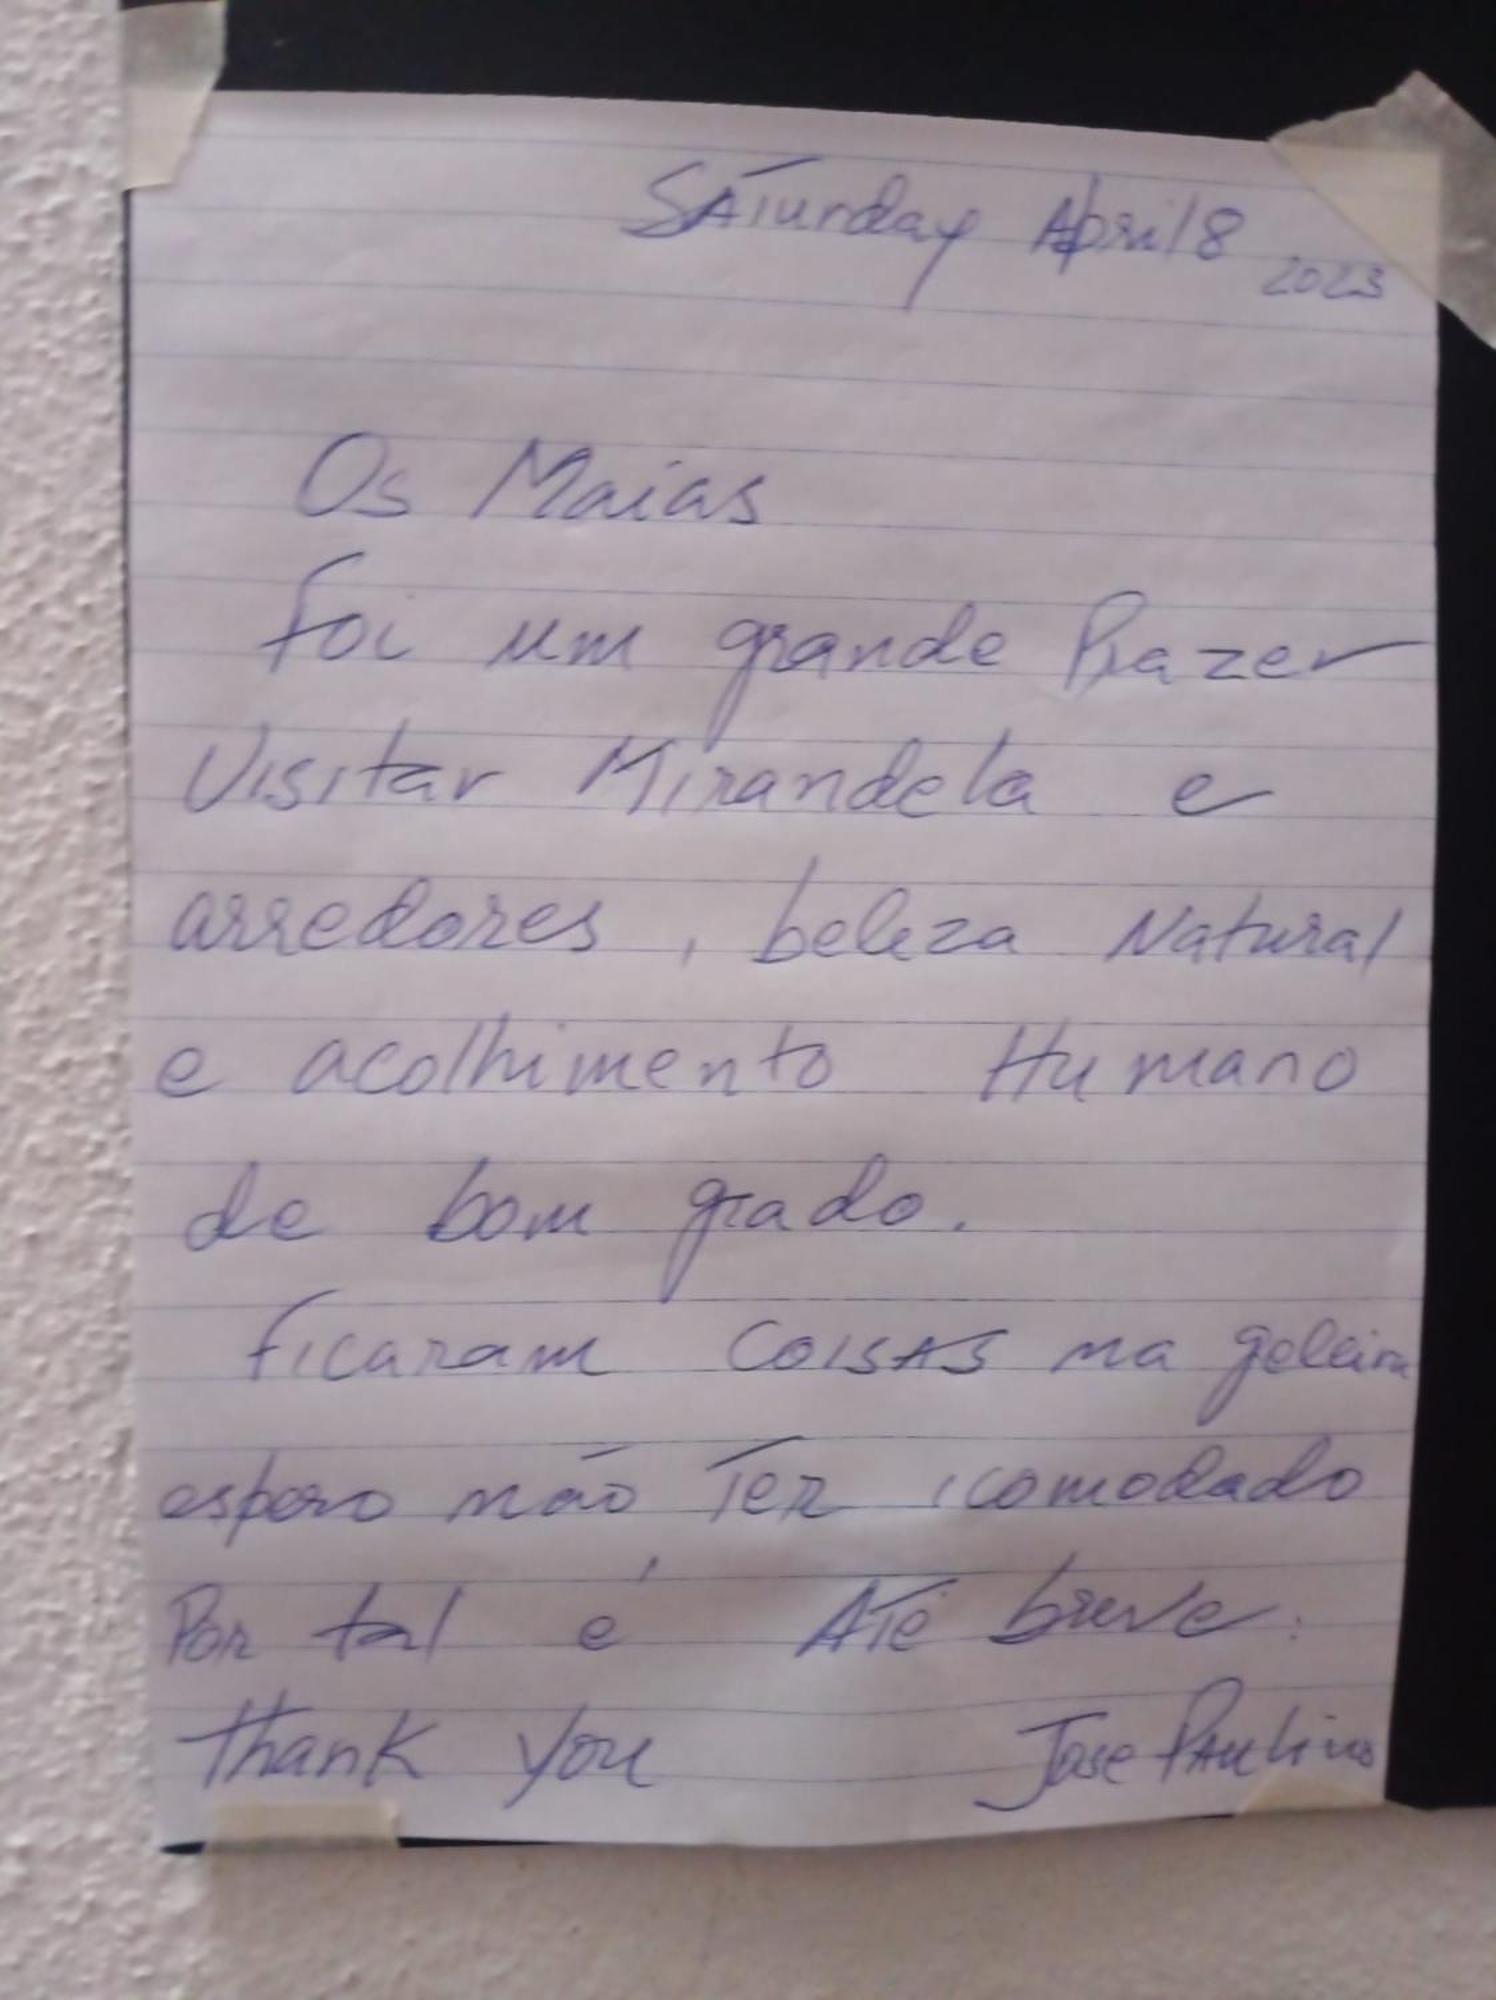 Saturday April 8
2023
Os Maias
Foi um grande Prazer
Visitar Mirandela e
arredores, beleza Natural
e acolhimento Humano
de bom grado.
Ficaram COISAS na geleira
espero não Ter icomodado
Por tal é Até breve.
thank you Jose Paulino